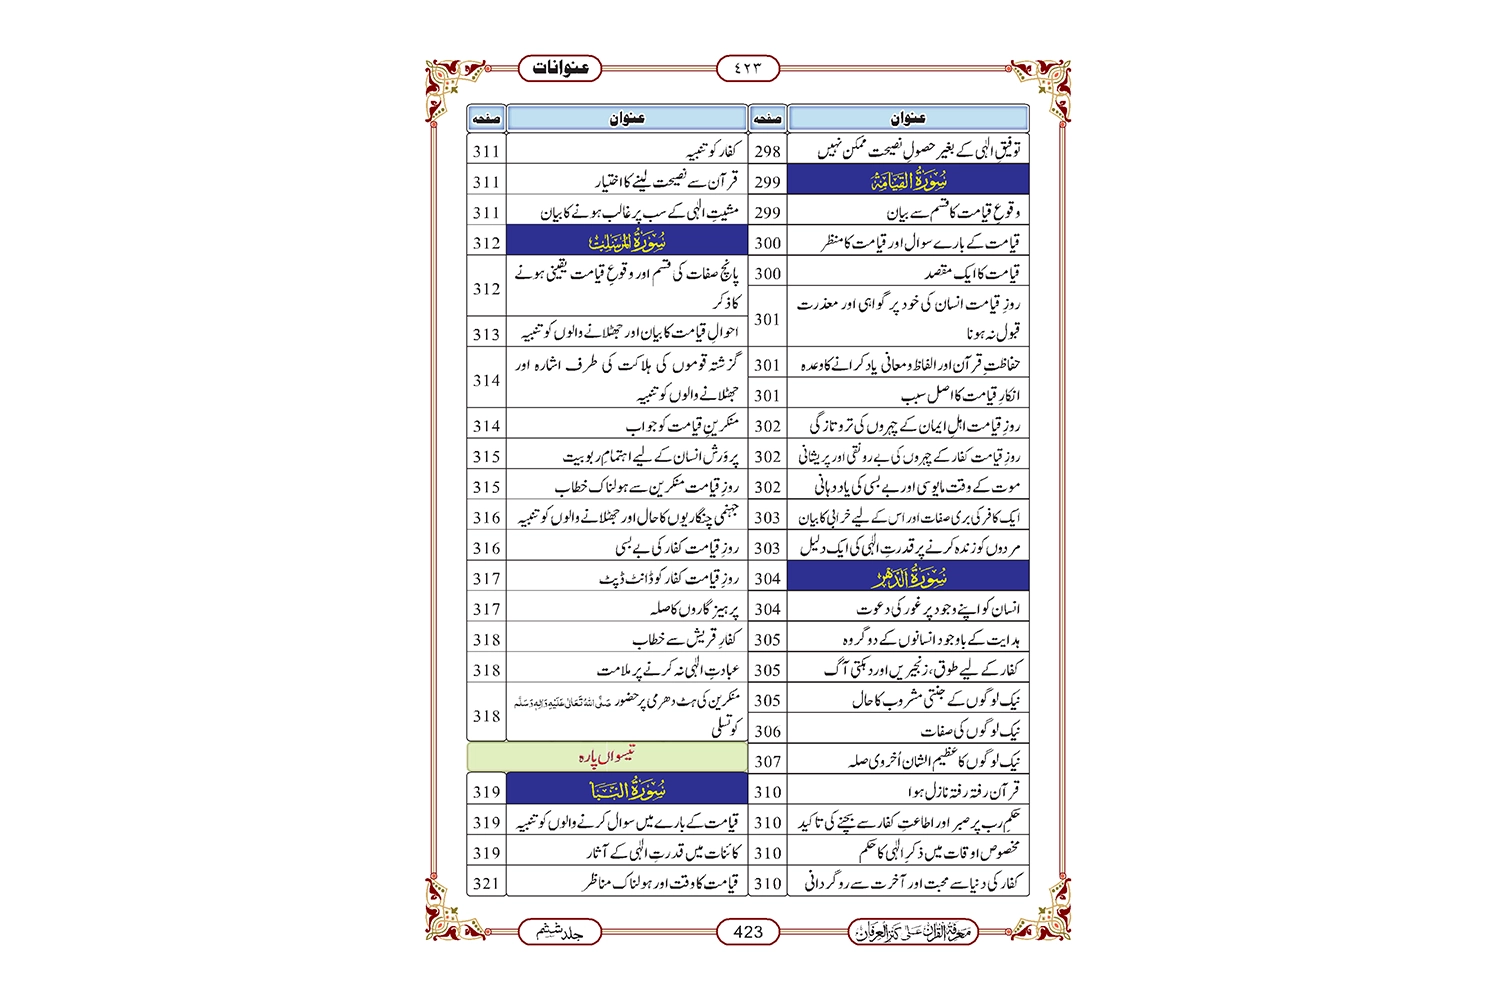 عنوانات
٤٢٣
عنوان صفحہ
توفیقِ الٰہی کے بغیر حصولِ نصیحت ممکن نہیں 298
سُوۡرَۃُ الۡقِیَامَۃِ 299
وقوعِ قیامت کا قسم سے بیان 299
قیامت کے بارے سوال اور قیامت کا منظر 300
قیامت کا ایک مقصد 300
روزِ قیامت انسان کی خود پر گواہی اور معذرت
قبول نہ ہونا 301
حفاظتِ قرآن اور الفاظ و معانی یاد کرانے کا وعدہ 301
انکارِ قیامت کا اصل سبب 301
روزِ قیامت اہلِ ایمان کے چہروں کی تروتازگی 302
روزِ قیامت کفار کے چہروں کی بے رونقی اور پریشانی 302
موت کے وقت مایوسی اور بے بسی کی یاد دہانی 302
ایک کافر کی بری صفات اور اس کے لیے خرابی کا بیان 303
مردوں کو زندہ کرنے پر قدرتِ الٰہی کی ایک دلیل 303
سُوۡرَۃُ الدَّهۡرِ 304
انسان کو اپنے وجود پر غور کی دعوت 304
ہدایت کے باوجود انسانوں کے دو گروہ 305
کفار کے لیے طوق، زنجیریں اور دہکتی آگ 305
نیک لوگوں کے جنتی مشروب کا حال 305
نیک لوگوں کی صفات 306
نیک لوگوں کا عظیم الشان اُخروی صلہ 307
قرآن رفتہ رفتہ نازل ہوا 310
حکمِ رب پر صبر اور اطاعتِ کفار سے بچنے کی تاکید 310
مخصوص اوقات میں ذکرِ الٰہی کا حکم 310
کفار کی دنیا سے محبت اور آخرت سے روگردانی 310
عنوان صفحہ
کفار کو تنبیہ 311
قرآن سے نصیحت لینے کا اختیار 311
مشیتِ الٰہی کے سب پر غالب ہونے کا بیان 311
سُوۡرَۃُ الۡمُرۡسَلٰت 312
پانچ صفات کی قسم اور وقوعِ قیامت یقینی ہونے
کا ذکر 312
احوالِ قیامت کا بیان اور جھٹلانے والوں کو تنبیہ 313
گزشتہ قوموں کی ہلاکت کی طرف اشارہ اور
جھٹلانے والوں کو تنبیہ 314
منکرینِ قیامت کو جواب 314
پرورشِ انسان کے لیے اہتمامِ ربوبیت 315
روزِ قیامت منکرین سے ہولناک خطاب 315
جہنمی چنگاریوں کا حال اور جھٹلانے والوں کو تنبیہ 316
روزِ قیامت کفار کی بے بسی 316
روزِ قیامت کفار کو ڈانٹ ڈپٹ 317
پرہیزگاروں کا صلہ 317
کفارِ قریش سے خطاب 318
عبادتِ الٰہی نہ کرنے پر ملامت 318
منکرین کی ہٹ دھرمی پر حضور صَلَّی اللہُ تَعَالٰی عَلَیْہِ وَاٰلِہٖ وَسَلَّم
کو تسلی 318
تیسواں پارہ
سُوۡرَۃُ النَّبَاِ 319
قیامت کے بارے میں سوال کرنے والوں کو تنبیہ 319
کائنات میں قدرتِ الٰہی کے آثار 319
قیامت کا وقت اور ہولناک مناظر 321
مَعرِفَۃُ القُرآن عَلٰی کَنزِ العِرفَان
423
جلد ششم